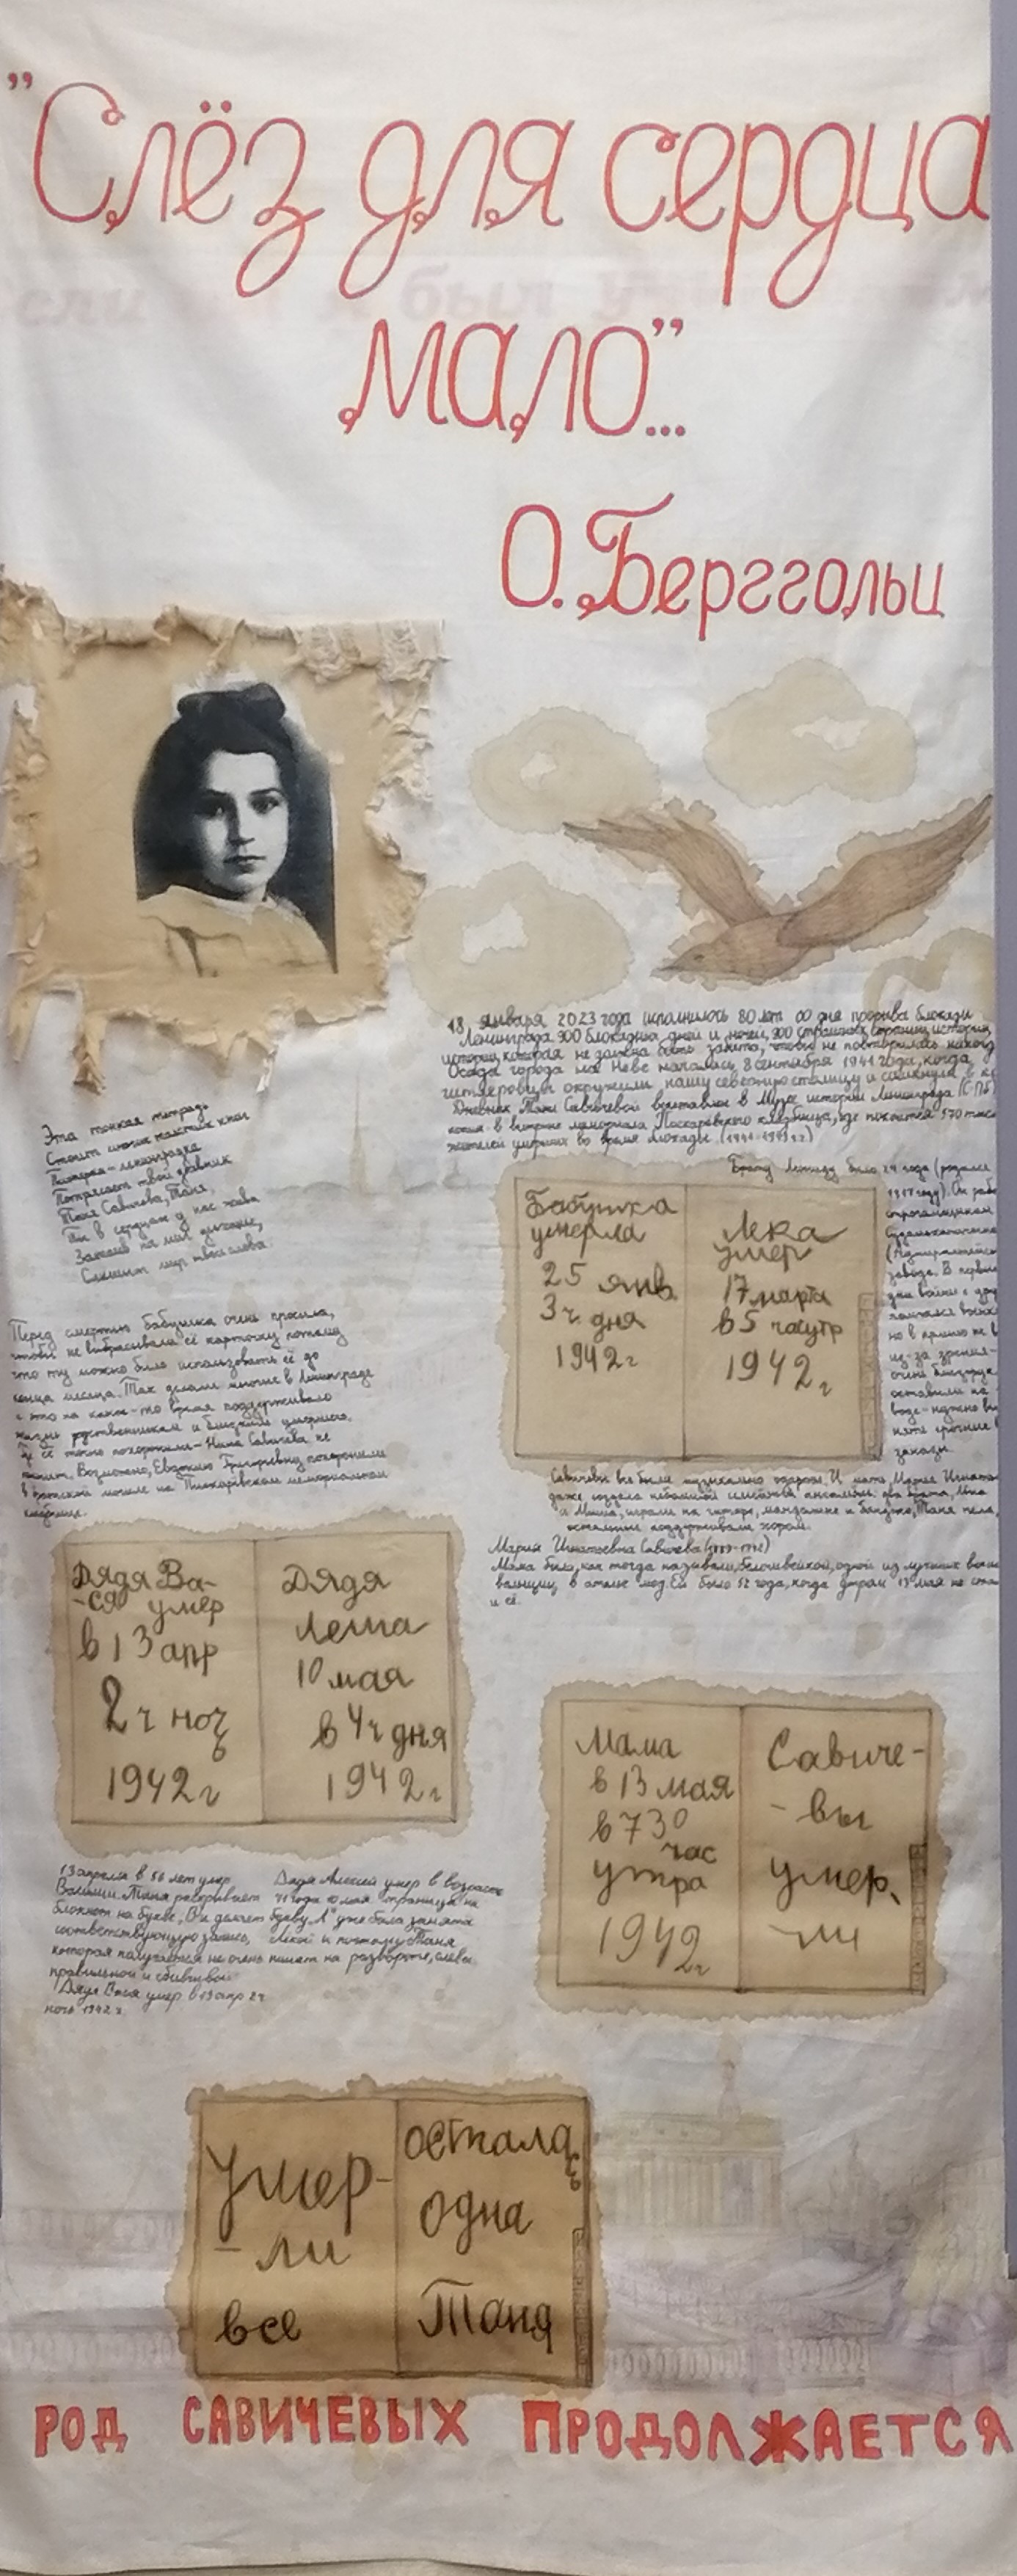 "Слёз для сердца
мало"...
О. Берггольц
18 января 2023 года исполнилось 80 лет со дня прорыва блокады
Ленинграда. 900 блокадных дней и ночей, 900 страшных страниц истории,
истории, которая не должна быть забыта, чтобы не повторилась никогд
Осада города на Неве началась 8 сентября 1941 года, когда
гитлеровцы окружили нашу северную столицу и сомкнули в к
Дневник Тани Савичевой выставлен в Музее истории Ленинграда (С-Пб)
копия в витрине мемориала Пискаревского кладбища, где покоятся 570 тыс
жителей умерших во время блокады. (1941-1943 гг)
Эта тонкая тетрадь
Стоит многих толстых книг
Пионерка-ленинградка
Потрясает твой дневник
Таня Савичева, Таня,
Ты в сердцах у нас жива
Затаив на миг дыханье,
Слышит мир твои слова.
Брату Леониду было 24 года (родился
1917 году). Он рабо
строгальщиком
Судомеханическо
(Адмиралтейск
заводе. В первые
дни войны с дру
помчался в военк
но в армию не в
из-за зрения-
очень близорук
оставили на
воде-нужно вы
нять срочные
заказы.
Бабушка
умерла
25 янв.
3 ч. дня
1942 г
Лека
умер
17 марта
в 5 часутр
1942 г
Перед смертью бабушка очень просила,
чтобы не выбрасывали её карточку, потому
что ту можно было использовать её до
конца месяца. Так делали многие в Ленинграде
и это на какое-то время поддерживало
жизнь родственникам и близким умершего.
Где её точно похоронили-Нина Савичева не
помнит. Возможно, Евдокию Григорьевну похоронили
в братской могиле на Пискарёвском мемориальном
кладбище.
Савичевы все были музыкально одарены. И мать, Мария Игнать
даже создала небольшой семейный ансамбль: два брата, Лека
и Миша, играли на гитаре, мандолине и банджо, Таня пела,
остальные поддерживали хором.
Мария Игнатьевна Савичева (1889-1942)
Мама была, как тогда называли, белошвейкой, одной из лучших выши
вальщиц в ателье мод. Ей было 52 года, когда утром 13 мая не ста
и её.
Дядя Ва-
-ся умер
в 13 апр
2 ч ночь
1942 г
Дядя
Леша
10 мая
в 4 ч дня
1942 г
Мама
в 13 мая
в 7 30
час
утра
1942 г
Савиче-
-вы
умер.
-ли
13 апреля в 56 лет умер
Василий. Таня раскрывает
блокнот на букве „В" и делает
соответствующую запись,
которая получается не очень
правильной и сбивчивой:
"Дядя Вася умер в 13 апр 2 ч
ночь 1942 г.
Дядя Алексей умер в возрасте
71 года 10 мая. Страница на
букву „Л" уже была занята
Лекой и поэтому Таня
пишет на развороте, слева
Умер-
-ли
все
осталась
одна
Таня
РОД САВИЧЕВЫХ ПРОДОЛЖАЕТСЯ